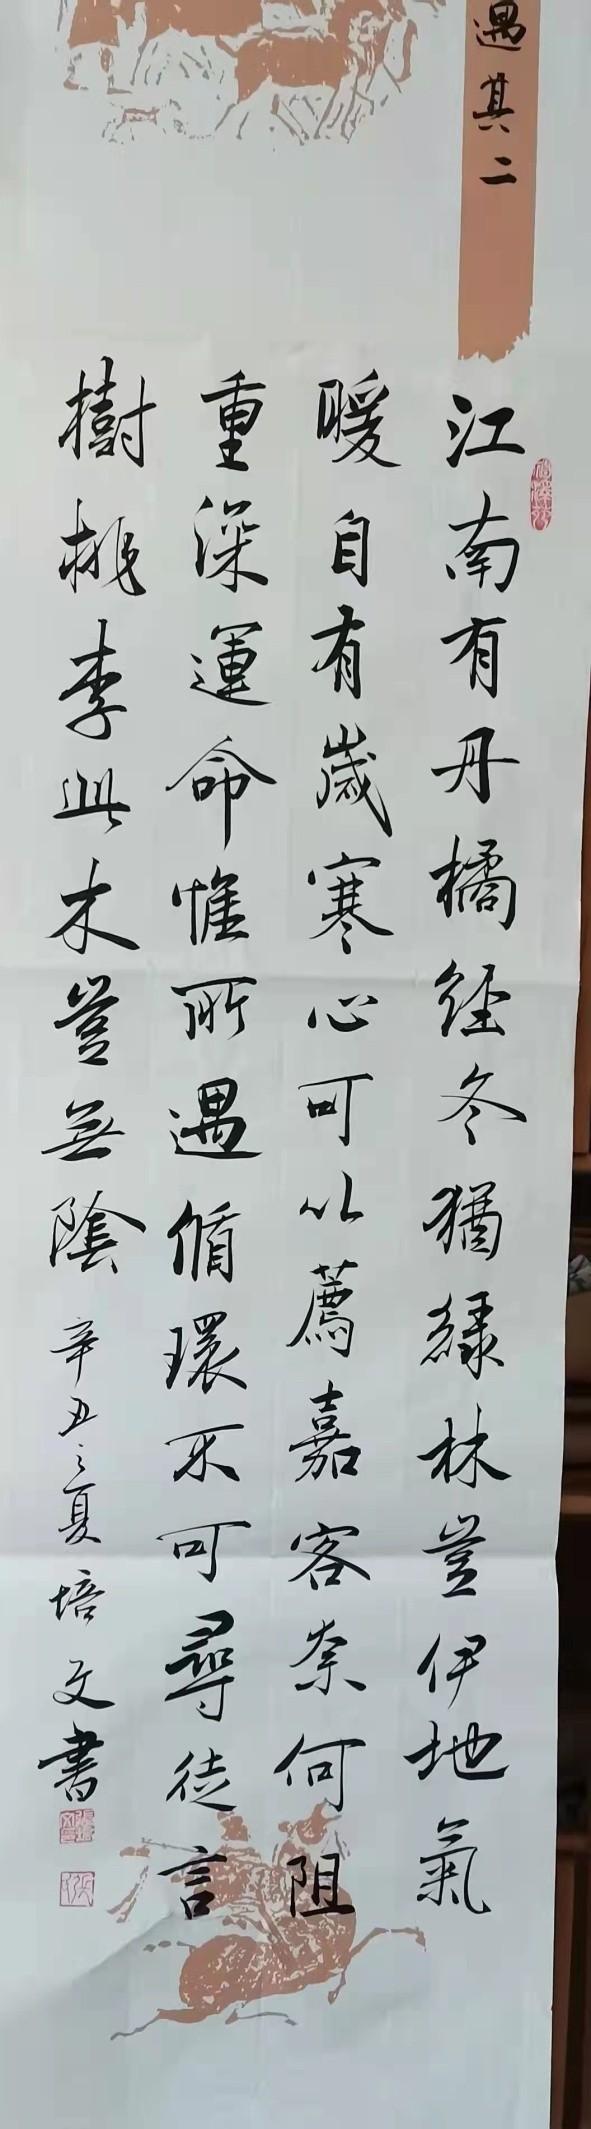 遇其二
江南有丹橘経冬猶緑林豈伊地氣
暖自有歲寒心可以薦嘉客奈何阻
重深運命惟所遇循環不可尋徒言
樹桃李此木豈無陰
辛丑之夏培文書